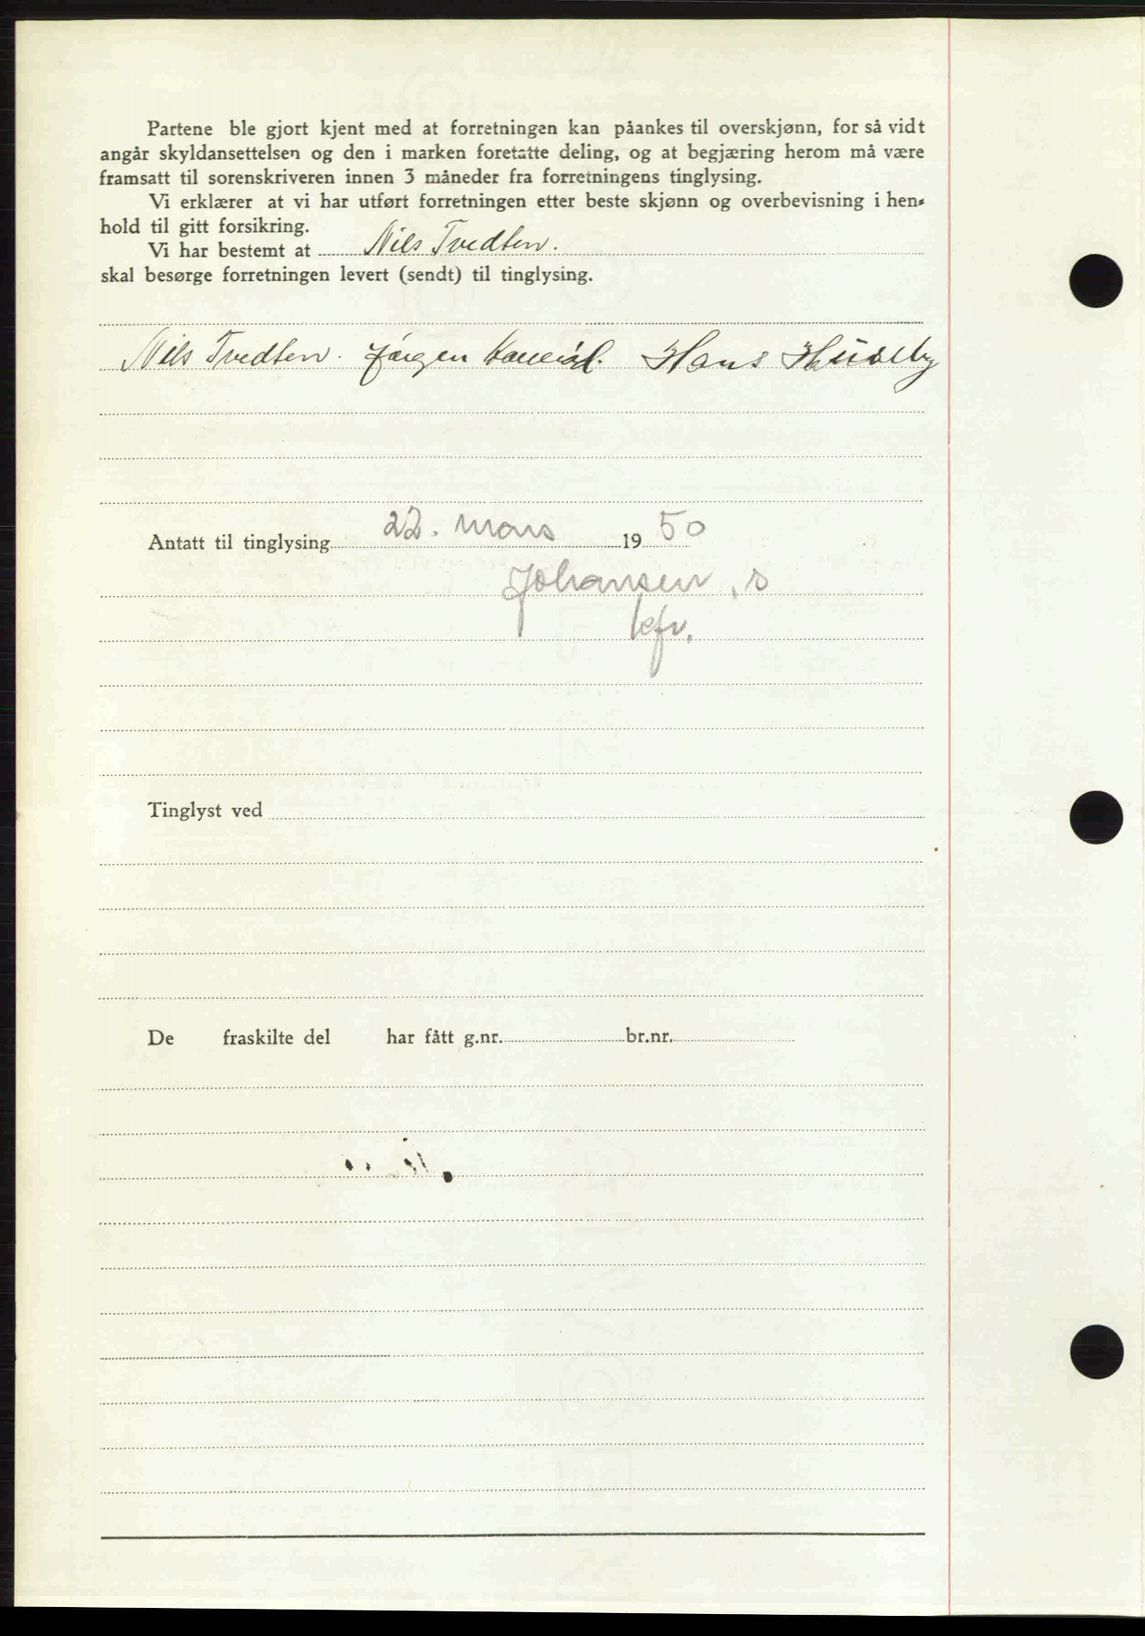 Partene ble gjort kjent med at forretningen kan påankes til overskjønn, for så vidt
angår skyldansettelsen og den i marken foretatte deling, og at begjæring herom må være
framsatt til sorenskriveren innen 3 måneder fra forretningens tinglysing.
Vi erklærer at vi har utført forretningen etter beste skjønn og overbevisning i hen-
hold til gitt forsikring.
Vi har bestemt at Nils Tvedten.
skal besørge forretningen levert (sendt) til tinglysing.
Nils Tvedten. Jørgen Hans Huseby
Antatt til tinglysing 22. mars 1950
Johansen, s
kfv.
Tinglyst ved
De fraskilte del har fått g.nr. br.nr.